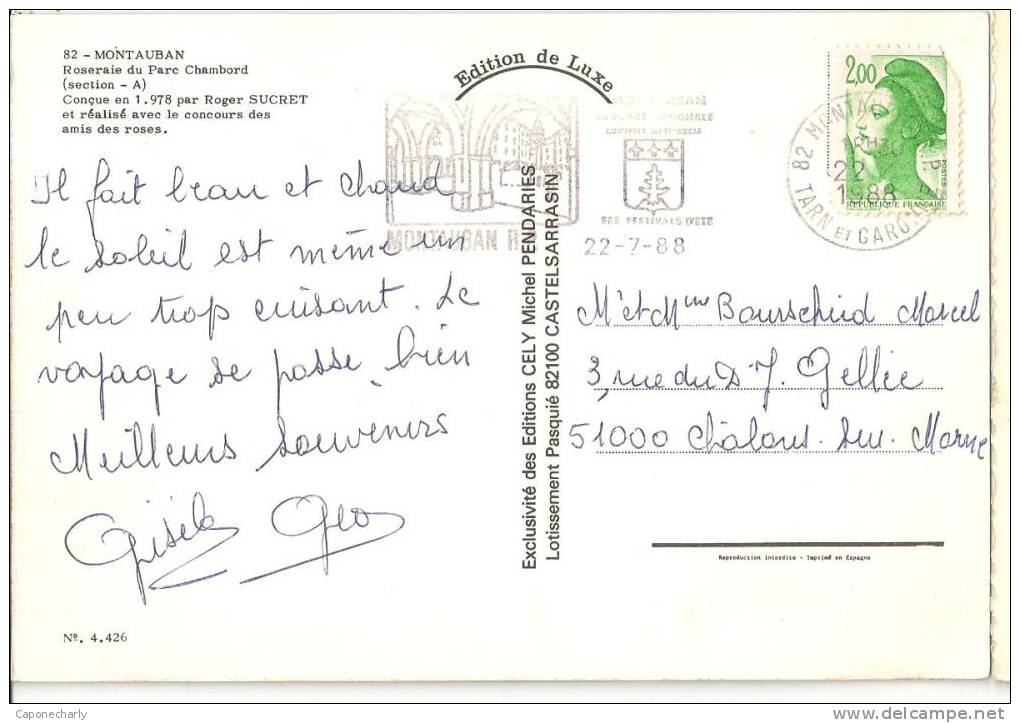 82 - MONTAUBAN
Roseraie du Parc Chambord
(section - A)
Conçue en 1.978 par Roger SUCRET
et réalisé avec le concours des
amis des roses.
Edition de Luxe
MONTAUBAN
SA PLACE NATIONALE
COUVERTS DU 17e SIECLE
SES FESTIVALS D'ETE
MONTAUBAN R.P.
22-7-88
82 MONTAUBAN R.P.
22
1988
TARN ET GARONNE
2,00
POSTES
REPUBLIQUE FRANÇAISE
Il fait beau et chaud
le soleil est même un
peu trop cuisant. Le
voyage se passe bien
Meilleurs souvenirs
Gisèle Geo
Exclusivité des Editions CELY Michel PENDARIES
Lotissement Pasquié 82100 CASTELSARRASIN
Mr et Mme Bourscheid Marcel
3, rue du Dr J. Gellée
51000 Châlons. Sur. Marne
Reproduction interdite - Imprimé en Espagne
Nº. 4.426
Caponecharly
www.delcampe.net